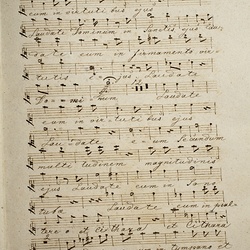 eum in virtutibus ejus
Laudate Dominum in Sanctis ejus
date eum in firmamento vir
tutis ejus Laudate
Dominum Laudate
eum in virtutibus ejus
Laudate eum secundum
multitudinem magnitudinis
ejus Laudate eum in so no
tubae Laudate eum in psal
terio et cithara et cithara
eum in tympano et